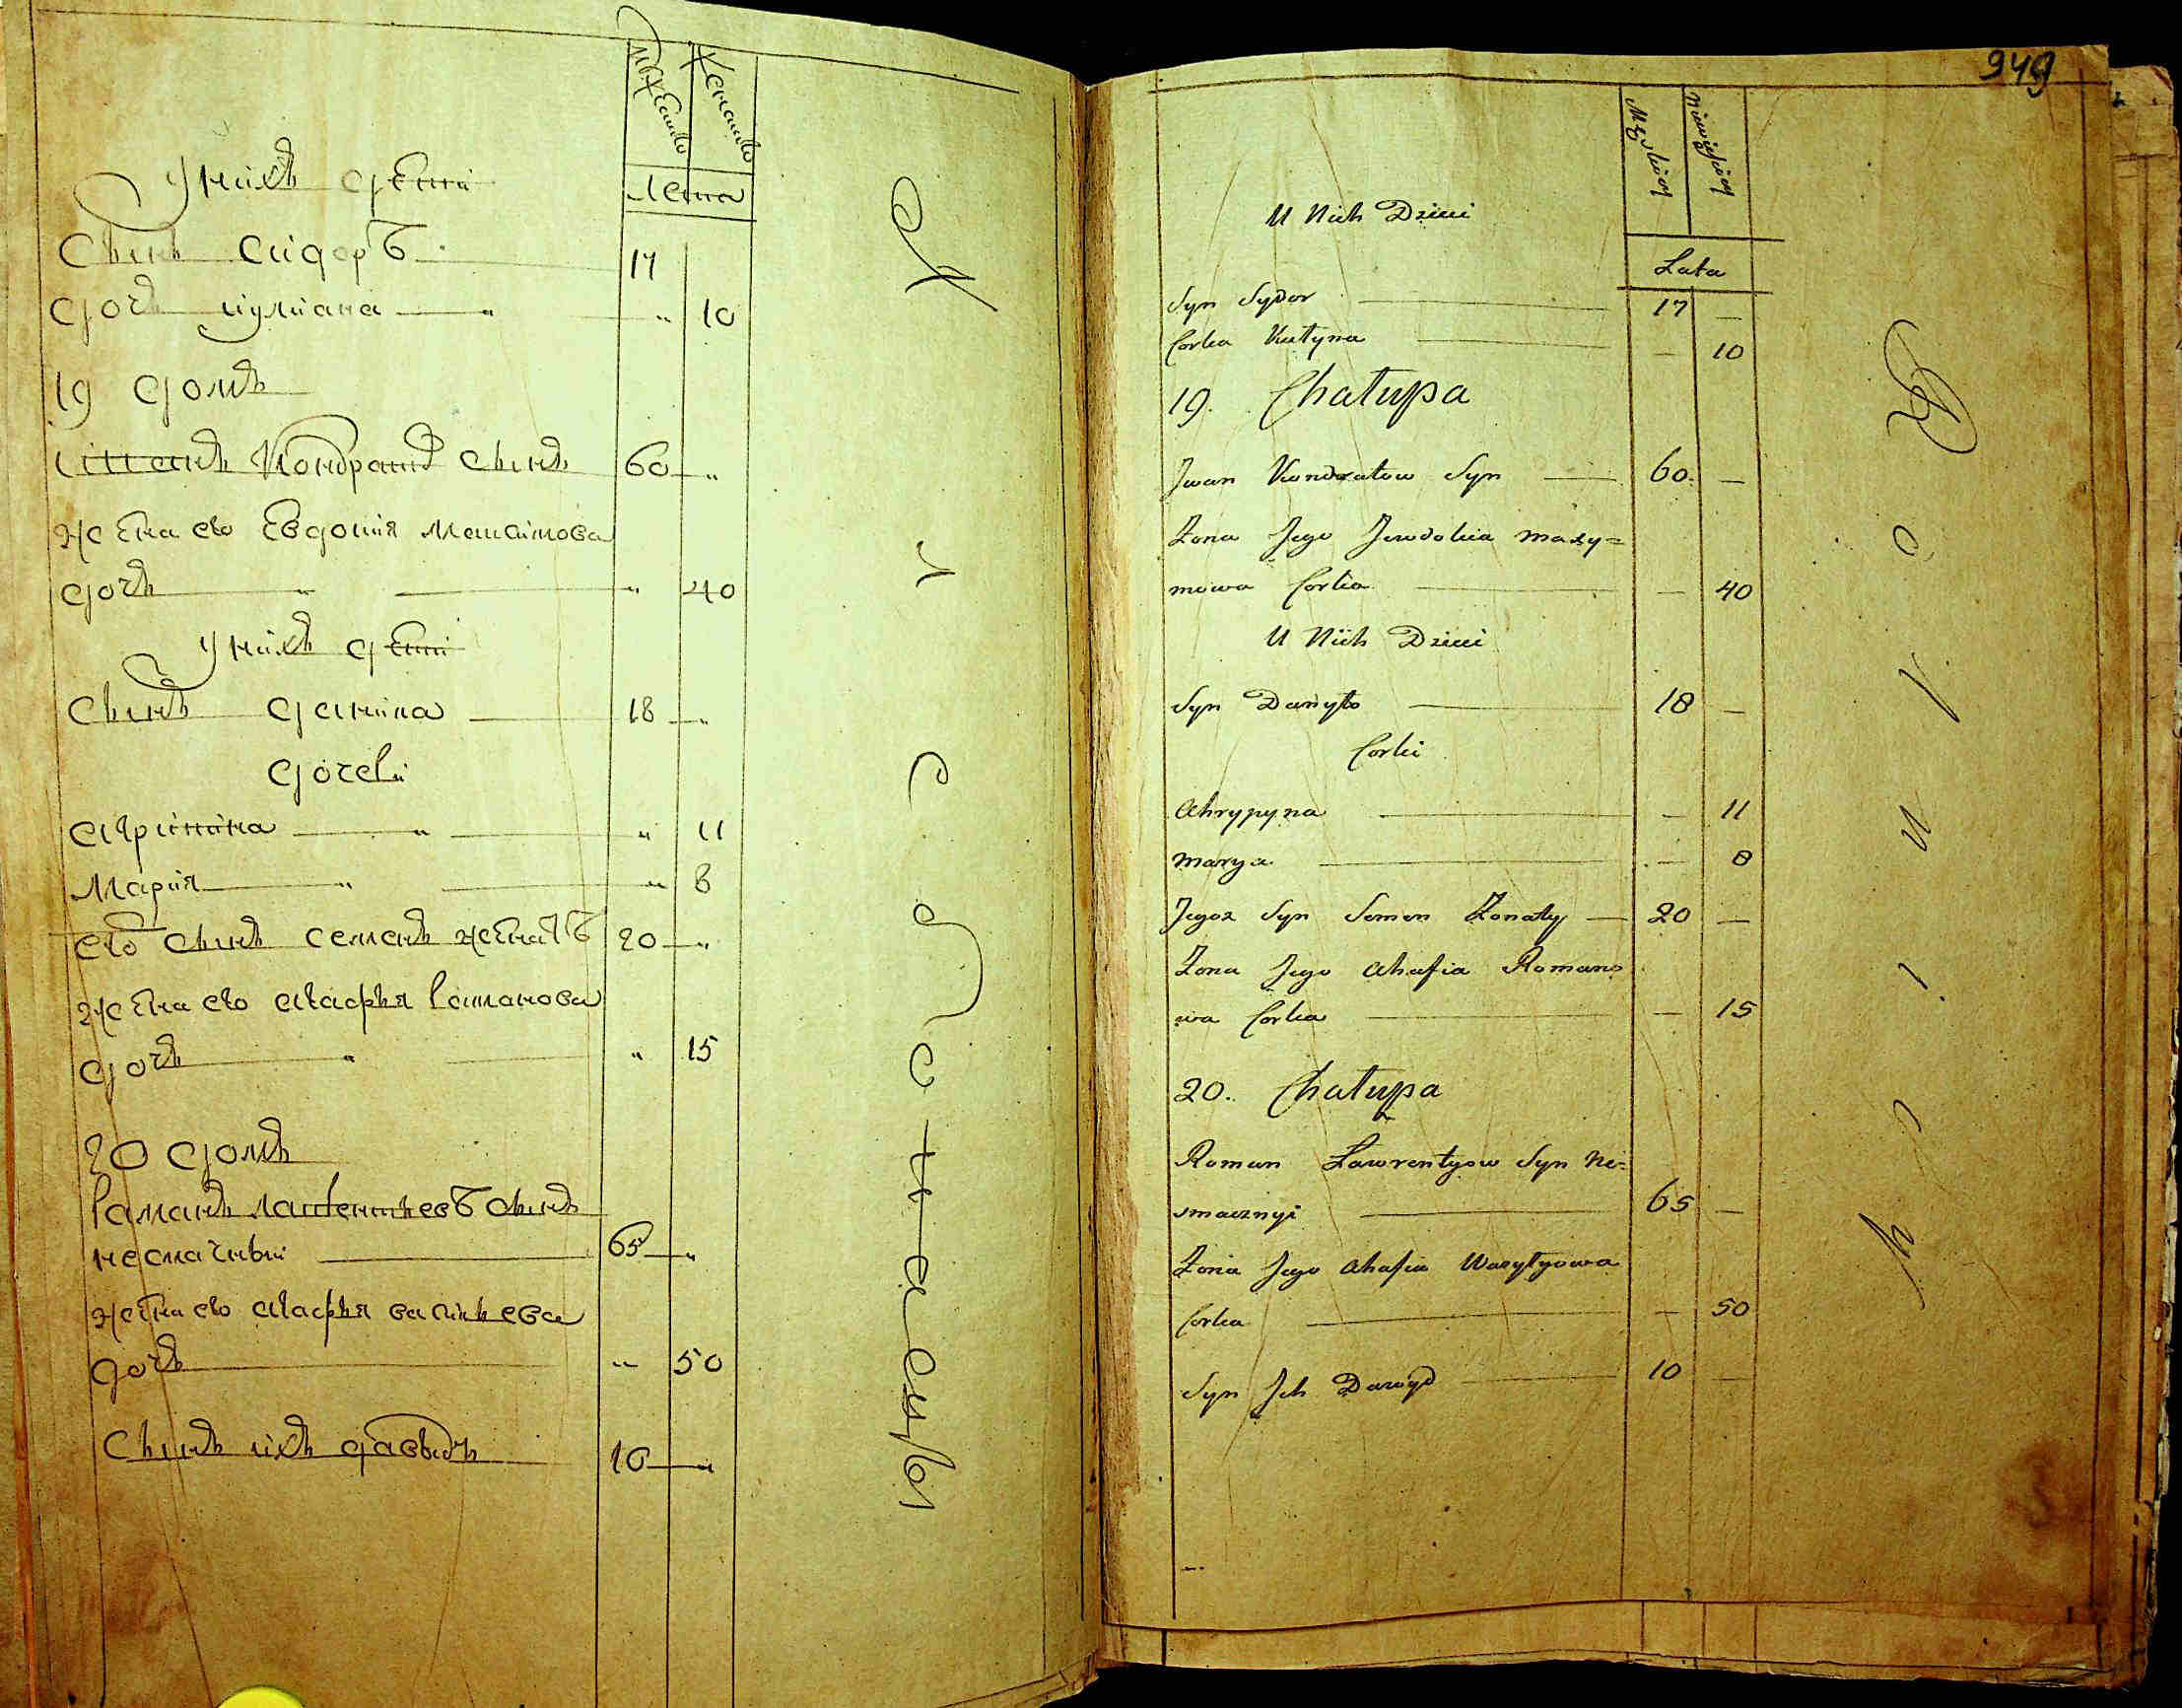 Мужеска Женска
Лета
У нихъ дети
Сынъ Сидоръ 17
дочь иулиана " " 10
19 домъ
Кондратъ сынъ 60 "
жена его Евдокия Максимова
дочь " " 40
У нихъ дети
Сынъ данила 18 "
дочери
агрипина " " 11
Мария " " 8
его сынъ семенъ женатъ 20 "
жена его агафья Романова
дочь " " 15
20 домъ
Романъ лаврентьевъ сынъ
несмачный 65 "
жена его агафья васильева
дочь " 50
Сынъ ихъ давыдъ 10 "
949
Męskiey Niewieściey
Lata
U Nich Dzieci
Syn Sydor 17 —
Corka 10
19. Chałupa
Jwan Kondratow Syn — 60. —
Zona Jego Jewdokia Maxy=
mowa Corka — 40
U Nich Dzieci
Syn Danyło 18 —
Corki
Ahrypyna — 11
Marya — 8
Jegoz Syn Semen Zonaty — 20 —
Zona Jego Ahafia Romano
wa Corka — 15
20. Chałupa
Roman Ławrentyow Syn Ne=
smacznyi 65 —
Zona Jego Ahafia Wasylyowa
Corka — 50
Syn Jch Dawyd 10 —